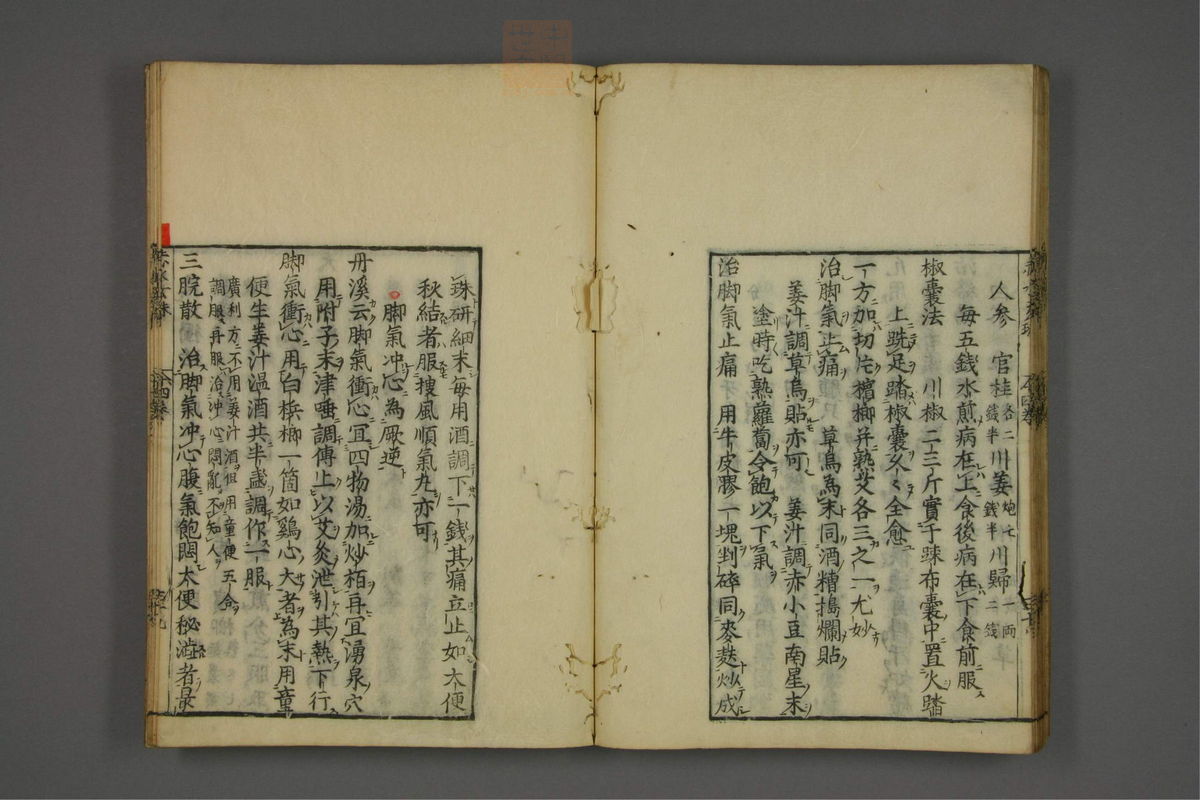 人参 官桂各二錢半川姜炮七錢半川歸一両二錢
每五錢水煎病在上食後病在下食前服
椒囊法 川椒二三斤實于踈布囊中置火踏
上跣足踏椒囊久々全愈
一方加切片檳榔并熟艾各三之一尤妙
治脚氣止痛 草烏為末同酒糟搗爛貼
姜汁調草烏貼亦可 姜汁調赤小豆南星末
塗時吃熟蘿蔔令飽以下氣
治脚氣止痛 用牛皮膠一塊剉碎同麥麩炒成
珠研細末每用酒調下一錢其痛立止如大便
秋結者服搜風順氣丸亦可
脚氣冲心為厥逆
丹溪云脚氣衝心宜四物湯加炒栢再宜湧泉穴
用附子末津唾調傅上以艾灸泄引其熱下行
脚氣衝心用白梹榔一箇如鷄心大者為末用童
便生姜汁温酒共半盞調作一服
廣利方不用姜汁酒但用童便五合
調服再服治冲心悶亂不知人
三脘散 治脚氣冲心腹氣飽悶大便秘澁者最